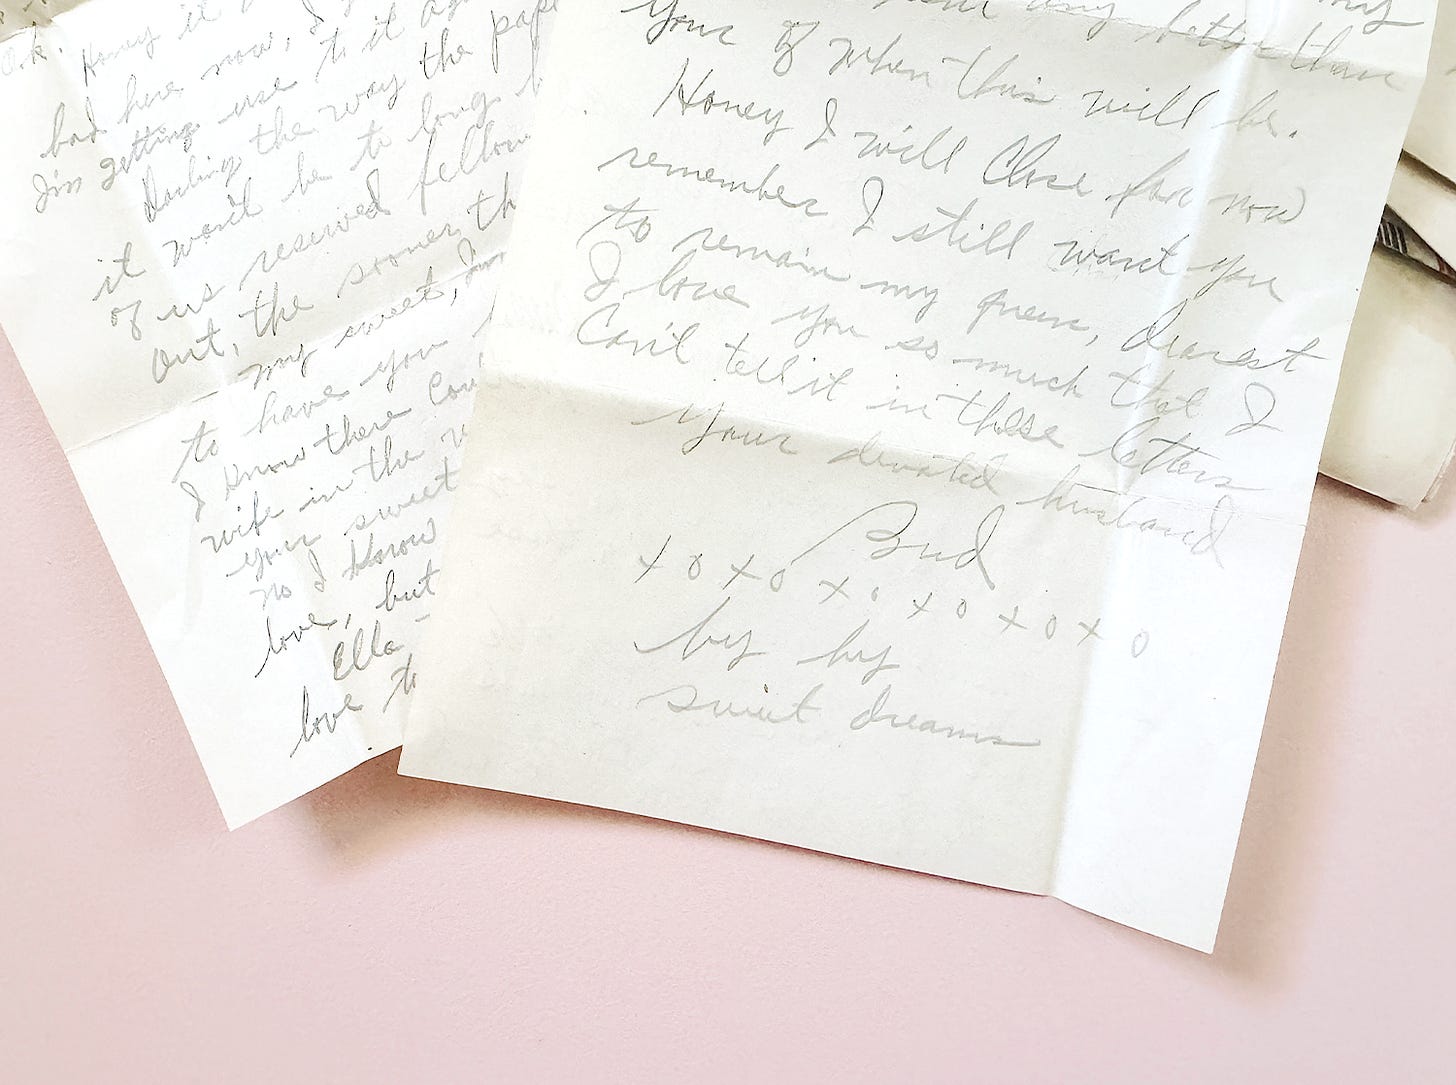 O.k. Honey it
bad here now, I
I'm getting use to it
Darling the way the pape
it won't be to long
of us reserved fellow
out, the sooner th
my sweet, I'm
to have you
I know there Cou
wife in the
your sweet
no I know
love, but
Ella
love to
any letter than
your of when this will be.
Honey I will Close for now
remember I still want you
to remain my queen, dearest
I love you so much that I
Can't tell it in these letters
Your devoted husband
Bud
x o x o x o x o x o x o
by by
sweet dreams